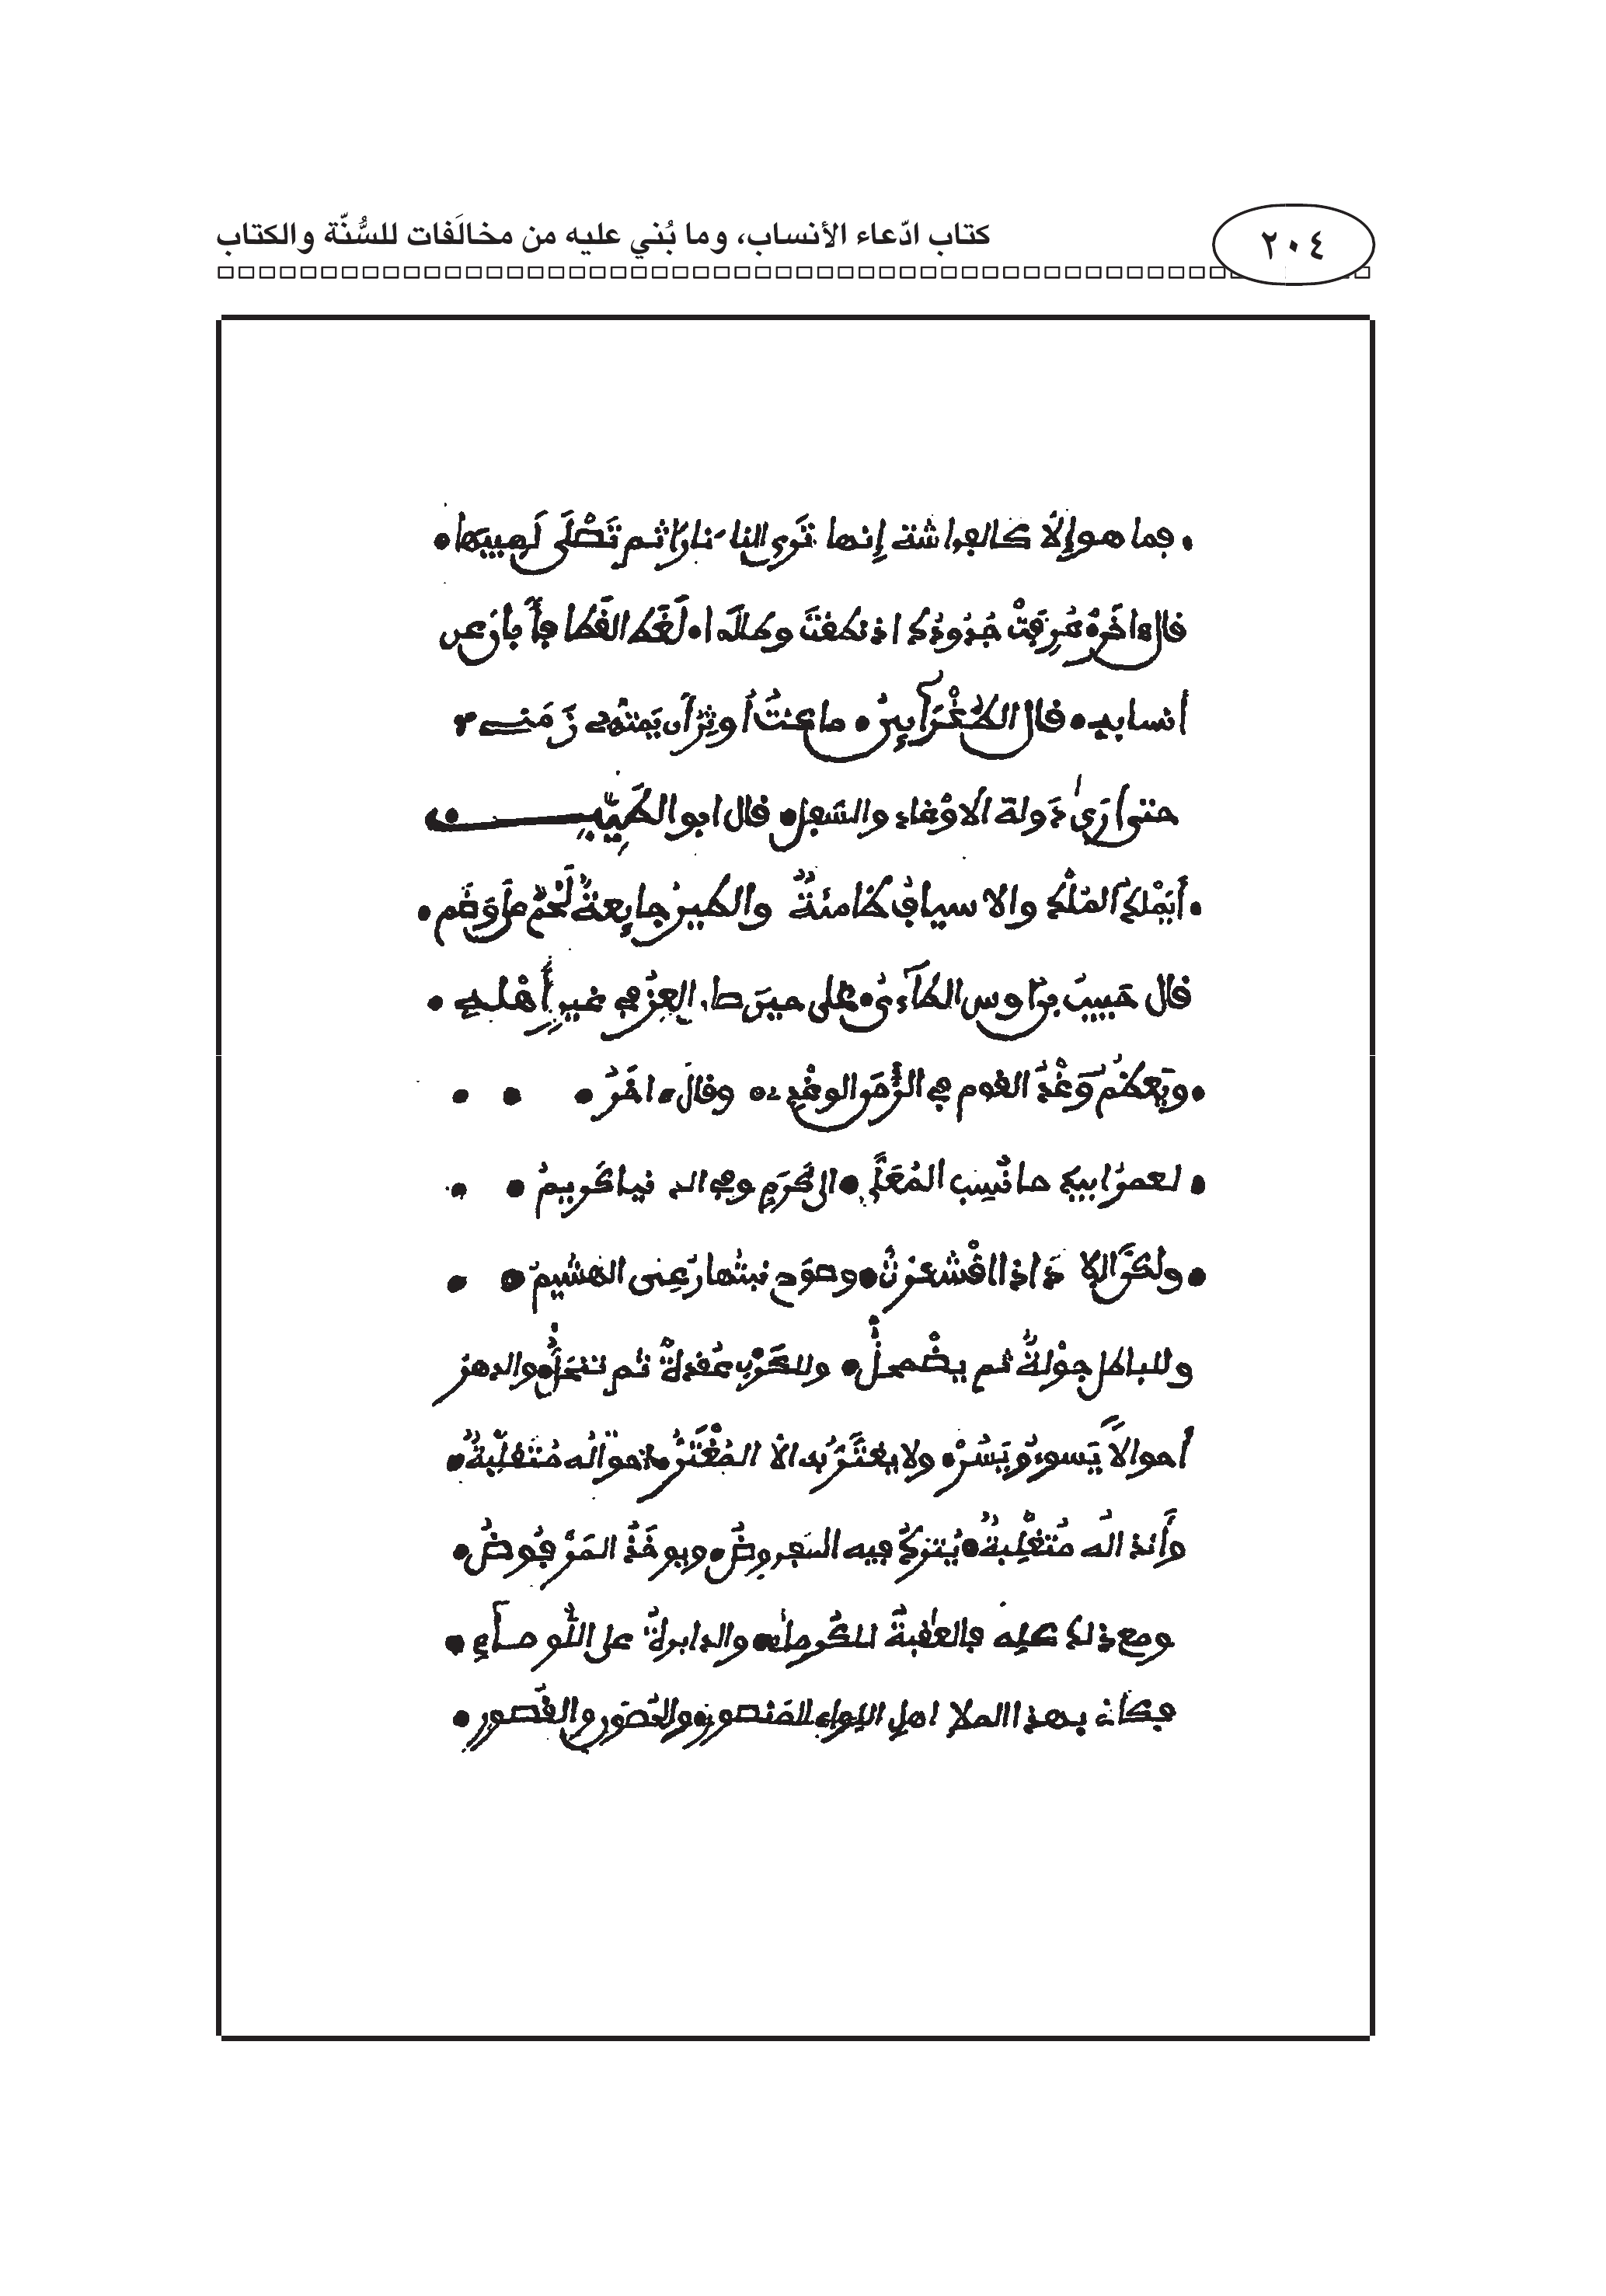 كتاب ادّعاء الأنساب، وما بُني عليه من مخالَفات للسُّنّة والكتاب
٢٠٤
فما هو إلا كالفراشة إنها ترى النار نارًا ثم تَصْلَى لَهِيبَها
قال ءاخَرُ عُرِفَتْ جُدُودُكَ اذ نطقتَ وطالَمَا لَغَطُ القَطَا فأَبَانَ عن
أنسابِهِ قال الطُّغْرَآئِيُّ ما كنتُ أُوثِرُ أن يَمتدَّ بي زَمَنِي
حتى أرَىٰ دَولة الاوْغادِ والسَّفِلِ قال ابو الطَيِّبِ
أَيَمْلِكُ المُلْكَ والاسيافُ ظامئةٌ والطيرُ جايِعةٌ لَحْمٌ على وَضَمِ
قال حَبِيبُ بن أوس الطآءي على حين العِزُّ في غيرِ أَهْلِهِ
ويَعظُمُ وَغْدُ القوم في الزَّمَنِ الوغْدِ وقالَ ءاخَرُ
لعمرُ ابيكَ ما نُسِبَ المُعَلَّى الى كَرَمٍ وفي الدنيا كريمُ
ولكنَّ البلادَ اذا اقْشَعَرَّتْ وصَوَّحَ نبتُها رُعِىَ الهَشِيمُ
وللباطل جوْلةٌ ثم يضْمحلُّ وللحَرْبِ عُقدةٌ ثم تنحَلُّ والدهرُ
أحوالاً يَسوءُ ويَسُرُّ ولا يغتَرُّ به الا المُغْتَرُّ احوالُه مُتقلِّبةٌ
وأنذالُه مُتغلِّبةٌ يُترَكُ فيه المفروضُ ويوخَذُ المَرْفُوضُ
ومع ذلك كله فالعقبةُ للكُرماء والدايرةُ على اللُّوَماءِ
فكأن بهذا الملا اهل اللواء المنصور والقُصور